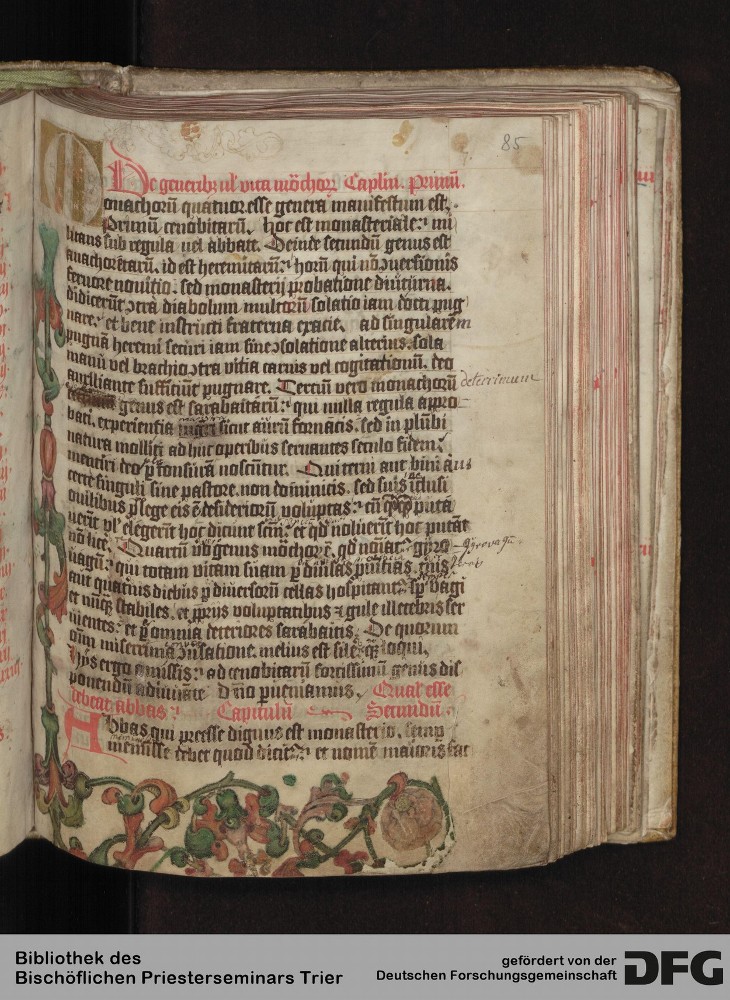 85
De generib; ul' uita mōchoꝝ Caplm. Primū.
Monachorū quatuor esse genera manifestum est.
Primū cenobitarū. hoc est monasteriale: mi
litans sub regula uel abbate. Deinde secundū genus est
anachoretarū. id est heremitarū: horū qui nō ↄuersionis
feruore nouitio. sed monasterij probatione diuturna.
didicerūt ↄtrà diabolum multorū solatio iam docti pug
nare: et bene instructi fraterna ex acie. ad singularem
pugnā heremi securi iam sine ↄsolatione alterius. sola
manu vel brachio ↄtra vitia carnis vel cogitationū. deo
auxiliante sufficiūt pugnare. Tercium vero monachorū deterrimum
genus est sarabaitarū: qui nulla regula appro
bati. experientia sicut aurū fornacis. sed in plūbi
natura molliti ad huc operibus seruantes seculo fidem:
mentiri deo ꝑ tonsurā noscūtur. Qui terni aut bini aut
certe singuli sine pastore. non dominicis. sed suis īclusi
ouilibus ꝓ lege eis ē desideriorū voluptas: cū puta
uerīt vl' elegerīt hoc dicunt scm̄: et qd̄ noluerīt hoc putāt
nō lice. Quartū v̄o genus mōchoꝝ ē. qd̄ noīat gyro gyrouagū.
uagū: qui totam vitam suam ꝑ diūsas ꝓuītias.
aut quatuis diebus ꝑ diuersorū cellas hospitant. sꝑ vagi
et nūꝙ stabiles. et ꝓprijs voluptatibus ⁊ gule illecebris ser
uientes: et ꝑ omnia deteriores sarabaitis. De quorum
oīm miserrima ↄūsatione. melius est silē loqui.
Hys ergo omissis: ad cenobitarū fortissimū genus dis
ponendū adiuuāte dn̄o ꝑueniamus. Qualis esse
debeat abbas: Capitulū Secundū.
Abbas qui preesse dignus est monasterio. semꝑ
meminisse debet quod dicit: et nomē maioris fac
Bibliothek des
Bischöflichen Priesterseminars Trier
gefördert von der
Deutschen Forschungsgemeinschaft
DFG